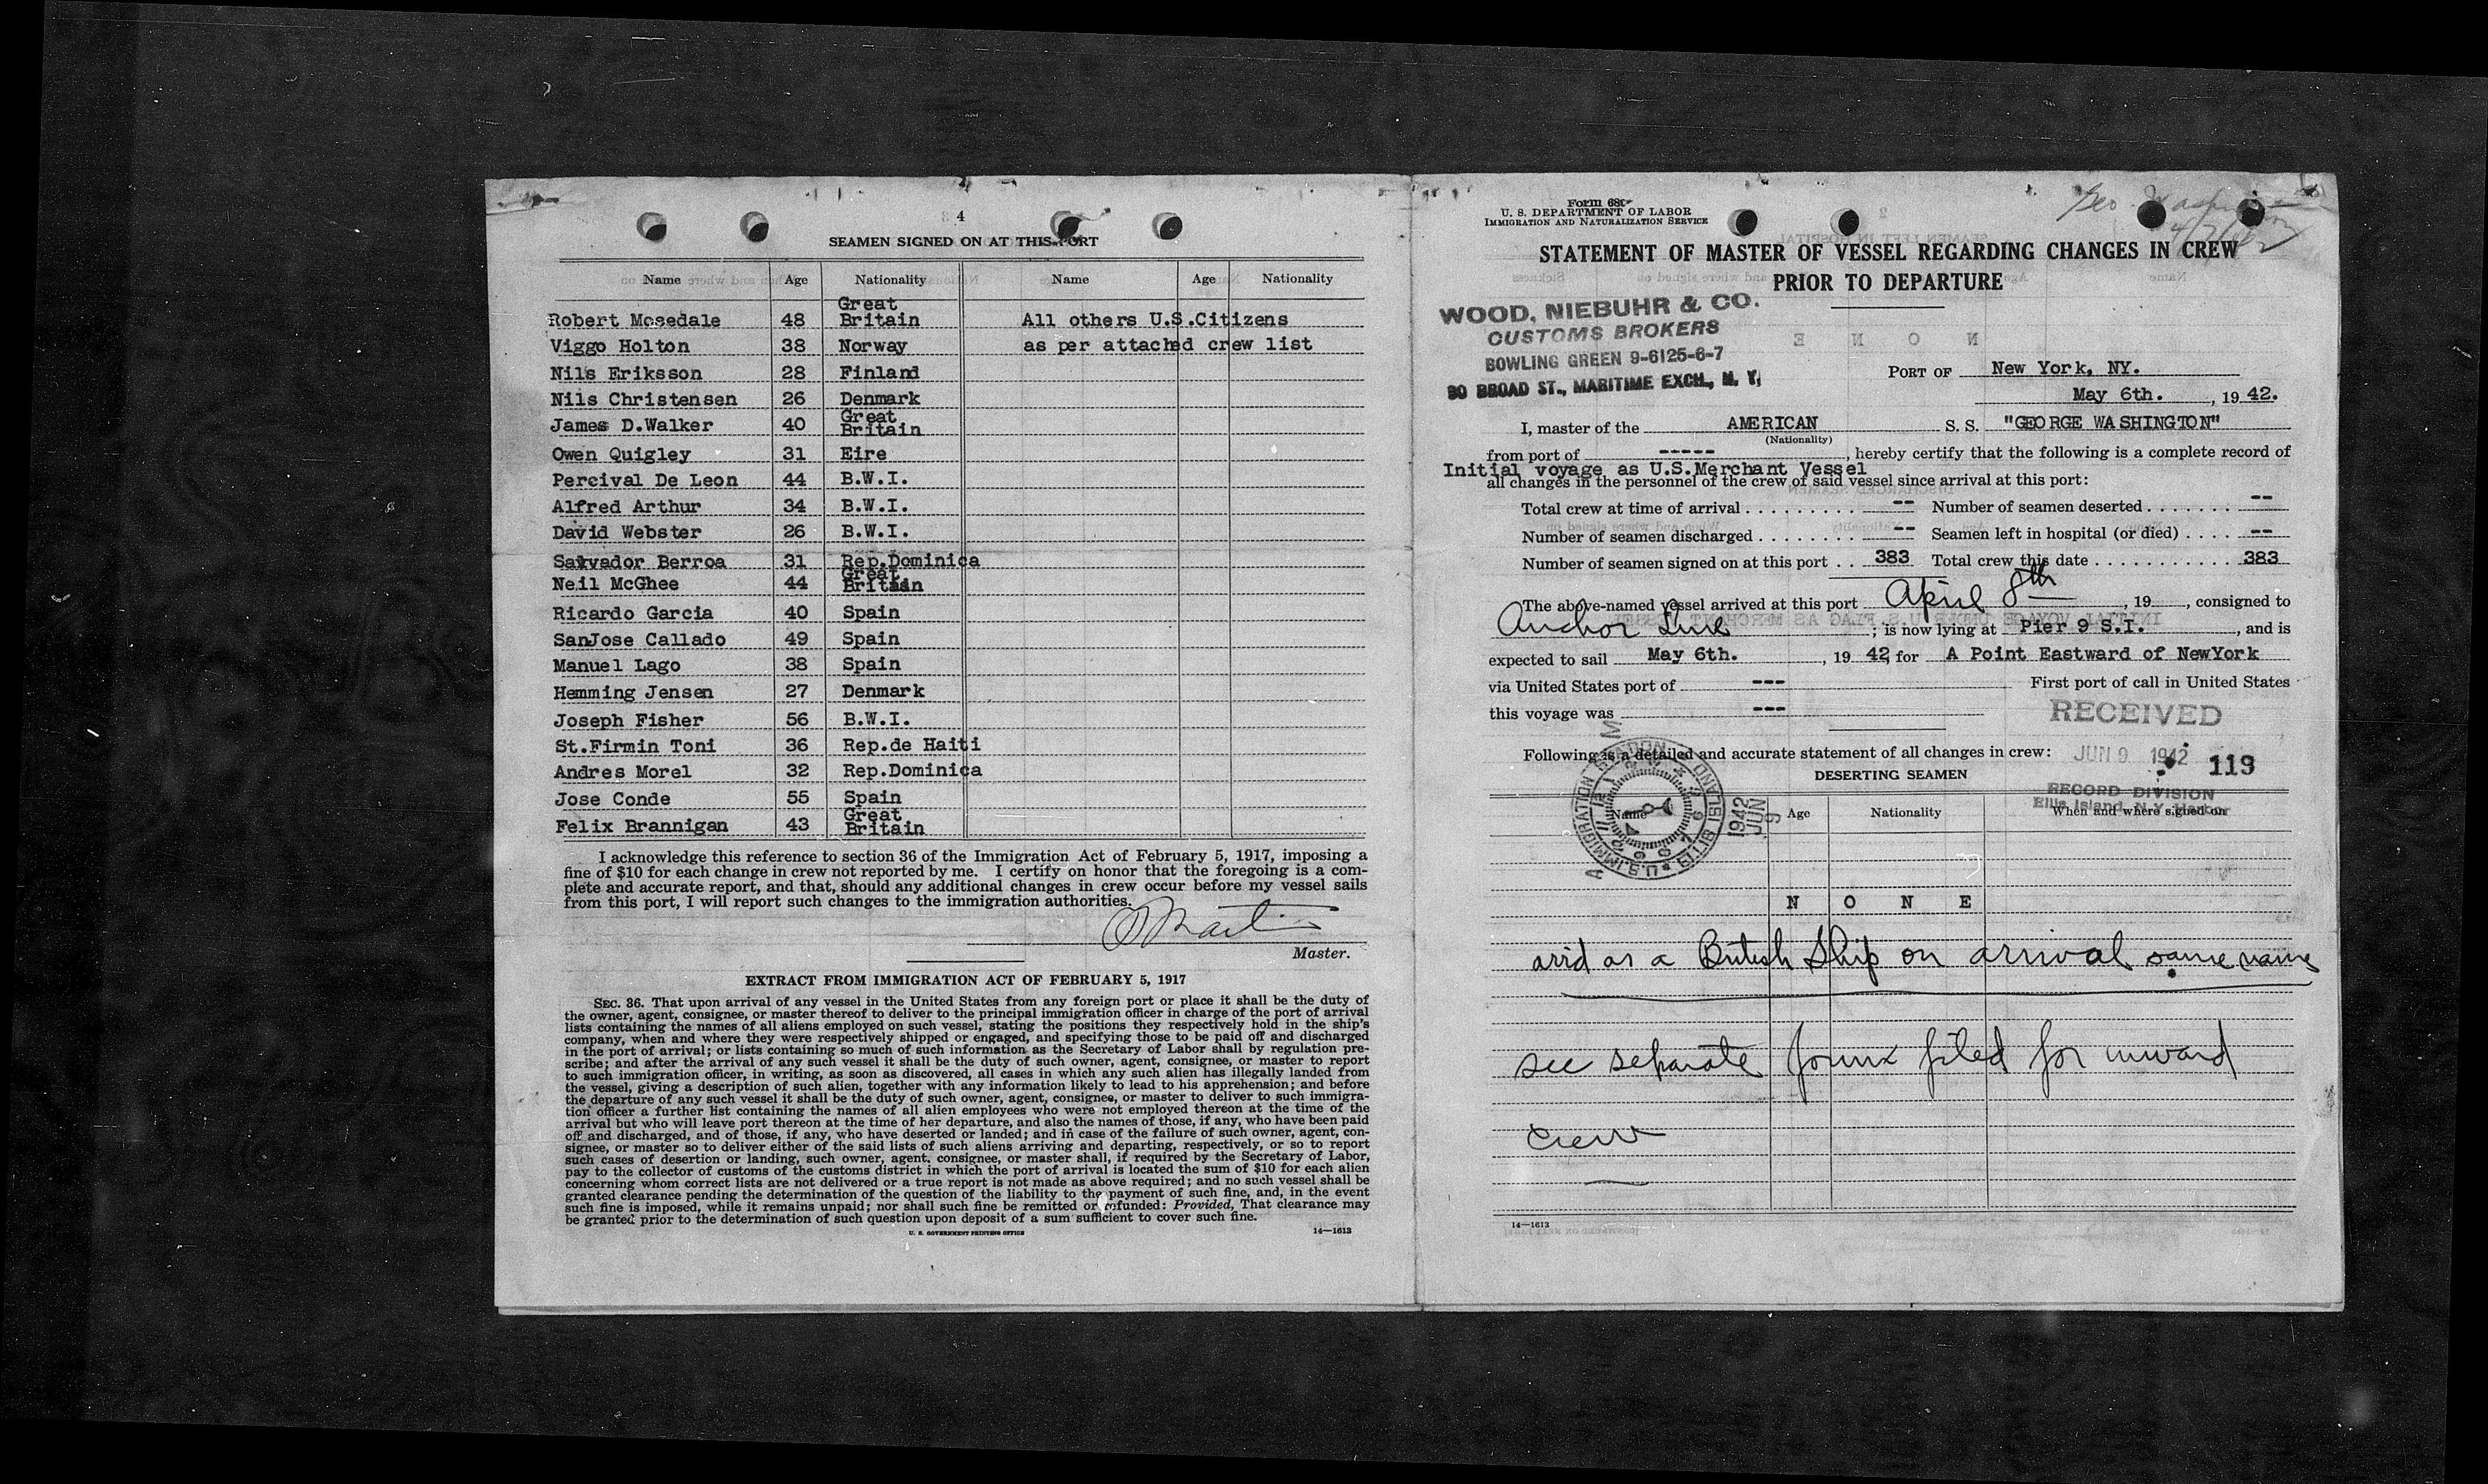 4
SEAMEN SIGNED ON AT THIS PORT
Name Age Nationality Name Age Nationality
Robert Mosedale 48 Great Britain All others U.S.Citizens
Viggo Holton 38 Norway as per attached crew list
Nils Eriksson 28 Finland
Nils Christensen 26 Denmark
James D.Walker 40 Great Britain
Owen Quigley 31 Eire
Percival De Leon 44 B.W.I.
Alfred Arthur 34 B.W.I.
David Webster 26 B.W.I.
Salvador Berroa 31 Rep.Dominica
Neil McGhee 44 Great Britain
Ricardo Garcia 40 Spain
SanJose Callado 49 Spain
Manuel Lago 38 Spain
Hemming Jensen 27 Denmark
Joseph Fisher 56 B.W.I.
St.Firmin Toni 36 Rep.de Haiti
Andres Morel 32 Rep.Dominica
Jose Conde 55 Spain
Felix Brannigan 43 Great Britain
I acknowledge this reference to section 36 of the Immigration Act of February 5, 1917, imposing a
fine of $10 for each change in crew not reported by me. I certify on honor that the foregoing is a com-
plete and accurate report, and that, should any additional changes in crew occur before my vessel sails
from this port, I will report such changes to the immigration authorities.
Master.
EXTRACT FROM IMMIGRATION ACT OF FEBRUARY 5, 1917
SEC. 36. That upon arrival of any vessel in the United States from any foreign port or place it shall be the duty of
the owner, agent, consignee, or master thereof to deliver to the principal immigration officer in charge of the port of arrival
lists containing the names of all aliens employed on such vessel, stating the positions they respectively hold in the ship's
company, when and where they were respectively shipped or engaged, and specifying those to be paid off and discharged
in the port of arrival; or lists containing so much of such information as the Secretary of Labor shall by regulation pre-
scribe; and after the arrival of any such vessel it shall be the duty of such owner, agent, consignee, or master to report
to such immigration officer, in writing, as soon as discovered, all cases in which any such alien has illegally landed from
the vessel, giving a description of such alien, together with any information likely to lead to his apprehension; and before
the departure of any such vessel it shall be the duty of such owner, agent, consignee, or master to deliver to such immigra-
tion officer a further list containing the names of all alien employees who were not employed thereon at the time of the
arrival but who will leave port thereon at the time of her departure, and also the names of those, if any, who have been paid
off and discharged, and of those, if any, who have deserted or landed; and in case of the failure of such owner, agent, con-
signee, or master so to deliver either of the said lists of such aliens arriving and departing, respectively, or so to report
such cases of desertion or landing, such owner, agent, consignee, or master shall, if required by the Secretary of Labor,
pay to the collector of customs of the customs district in which the port of arrival is located the sum of $10 for each alien
concerning whom correct lists are not delivered or a true report is not made as above required; and no such vessel shall be
granted clearance pending the determination of the question of the liability to the payment of such fine, and, in the event
such fine is imposed, while it remains unpaid; nor shall such fine be remitted or refunded: Provided, That clearance may
be granted prior to the determination of such question upon deposit of a sum sufficient to cover such fine.
U. S. GOVERNMENT PRINTING OFFICE 14—1613
Form 680
U. S. DEPARTMENT OF LABOR
IMMIGRATION AND NATURALIZATION SERVICE
STATEMENT OF MASTER OF VESSEL REGARDING CHANGES IN CREW
PRIOR TO DEPARTURE
WOOD, NIEBUHR & CO.
CUSTOMS BROKERS
BOWLING GREEN 9-6125-6-7
90 BROAD ST., MARITIME EXCH., N. Y.
PORT OF New York, NY.
May 6th. , 19 42.
I, master of the AMERICAN S. S. "GEORGE WASHINGTON"
(Nationality)
from port of ----- , hereby certify that the following is a complete record of
Initial voyage as U.S.Merchant Vessel
all changes in the personnel of the crew of said vessel since arrival at this port:
Total crew at time of arrival -- Number of seamen deserted --
Number of seamen discharged -- Seamen left in hospital (or died) --
Number of seamen signed on at this port 383 Total crew this date 383
The above-named vessel arrived at this port April 8th , 19 , consigned to
Anchor Line ; is now lying at Pier 9 S.I. , and is
expected to sail May 6th. , 19 42, for A Point Eastward of NewYork
via United States port of --- First port of call in United States
this voyage was ---
RECEIVED
Following is a detailed and accurate statement of all changes in crew: JUN 9 1942
119
DESERTING SEAMEN
RECORD DIVISION
Ellis Island, N.Y. Harbor
Name Age Nationality When and where signed on
1942 JUN 9
N O N E
arrid as a British Ship on arrival same name
see separate forms filed for inward
crew
14—1613